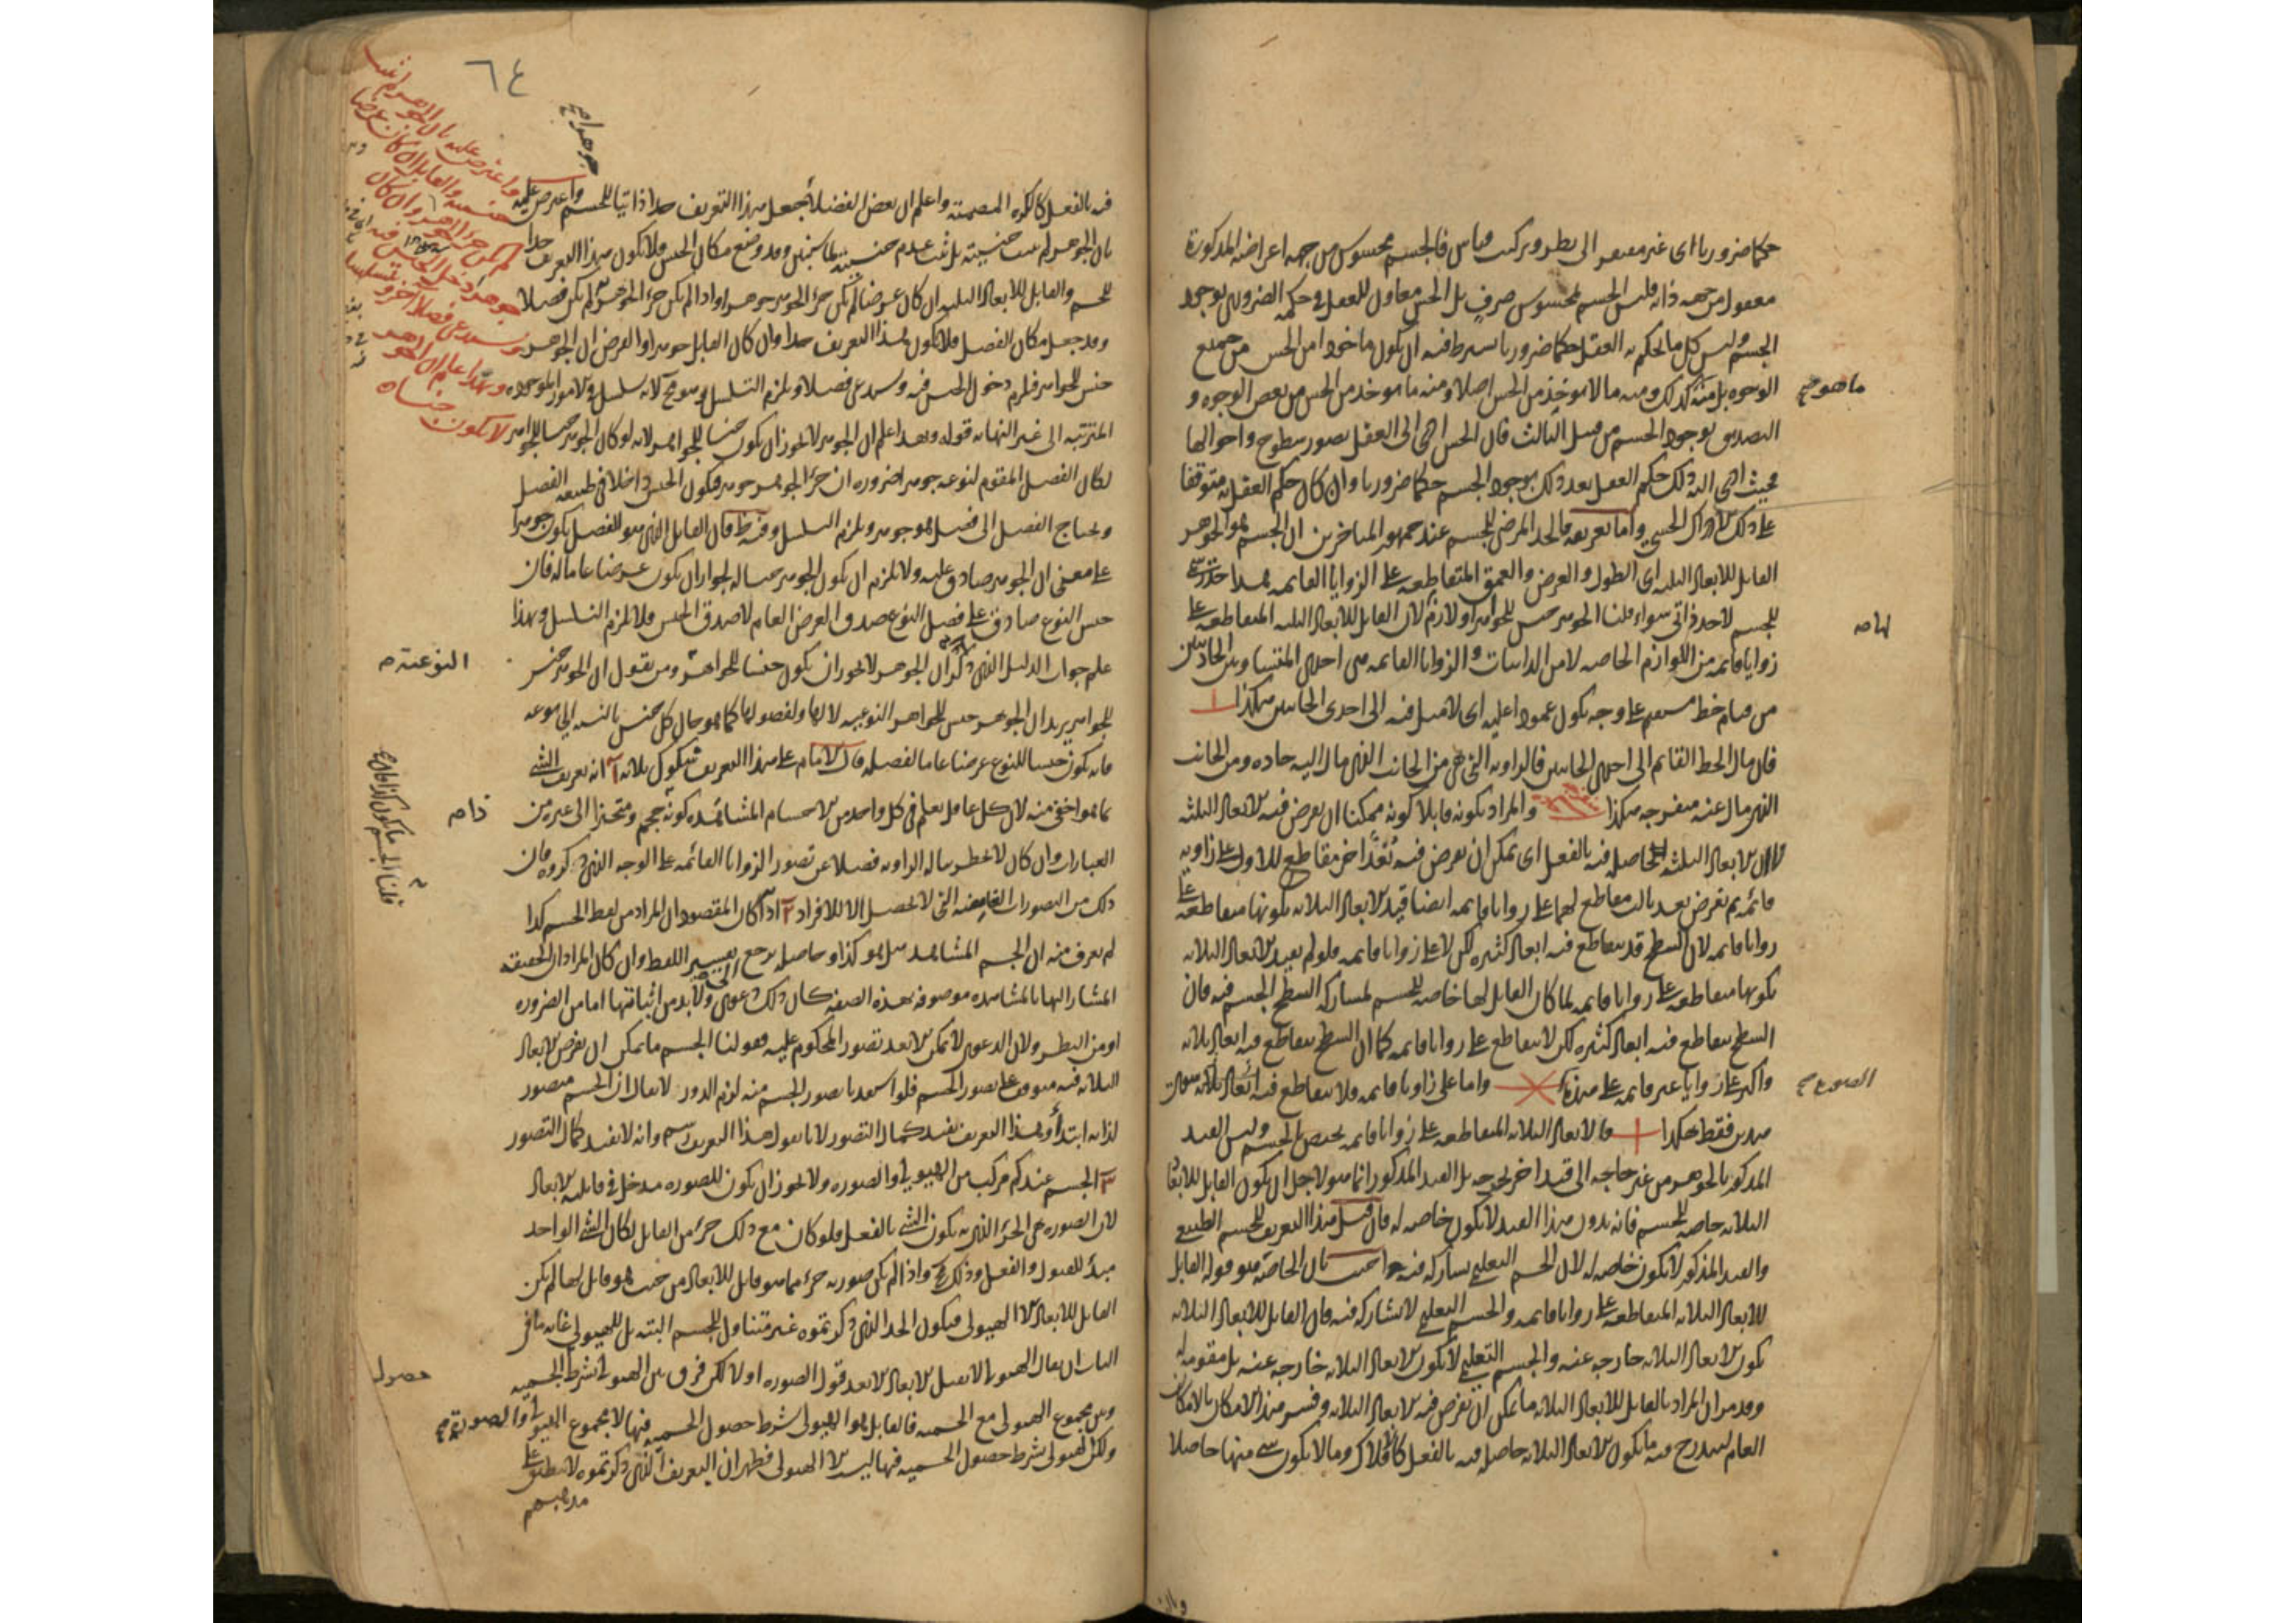 حكما ضروريا اى غير مفتقر الى نظر وتركيب قياس فالجسم محسوس من جهة اعراضه المذكورة
معقول من جهة ذاته فليس الجسم بمحسوس صرف بل الحس معاون للعقل فى حكمه الضرورى بوجود
الجسم وليس كل ما يحكم به العقل حكما ضروريا يشترط فيه ان يكون ماخوذا من الحس من جميع
الوجوه بل منه كذلك ومنه ما لا يوخذ من الحس اصلا ومنه ما يوخذ من الحس من بعض الوجوه و
ما هو صح
التصديق بوجود الجسم من قبيل الثالث فان الحس ادى الى العقل بصور سطوح واحوالها
فحيث ادى اليه ذلك حكم العقل بعد ذلك بوجود الجسم حكما ضروريا وان كان حكم العقل به متوقفا
على ذلك الادراك الحسى واما تعريفه فالحد المرضى للجسم عند جمهور المتاخرين ان الجسم هو الجوهر
القابل للابعاد الثلثة اى الطول والعرض والعمق المتقاطعة على الزوايا القائمة هذا حد رسمى
للجسم لا حد ذاتى سواء قلنا الجوهر جنس للجواهر او لازم لان القابل للابعاد الثلثة المتقاطعة على
زوايا قائمة من اللوازم الخاصة لا من الذاتيات والزوايا القائمة هى احدى المتساويتين الحادثتين
من قيام خط مستقيم على وجه يكون عمودا عليه اى لا ميل فيه الى احدى الجانبين هكذا
فان مال الخط القائم الى احدى الجانبين فالزاوية التى هى من الجانب الذى مال اليه حادة ومن الجانب
الذى مال عنه منفرجة هكذا والمراد بكونه قابلا كونه ممكنا ان يعرض فيه الابعاد الثلثة
لا ان الابعاد الثلثة حاصلة فيه بالفعل اى يمكن ان يعرض فيه بعد اخر مقاطع للاول على زاوية
قائمة ثم يفرض بعد ثالث مقاطع لهما على زوايا قائمة ايضا قيد الابعاد الثلاثة بكونها متقاطعة على
زوايا قائمة لان السطح قد يتقاطع فيه ابعاد كثيرة لكن لا على زوايا قائمة فلو لم يقيد الابعاد الثلاثة
بكونها متقاطعة على زوايا قائمة لما كان القابل لها خاصة للجسم لمشاركة السطح الجسم فيه فان
السطح يتقاطع فيه ابعاد كثيرة لكن لا يتقاطع على زوايا قائمة كما ان السطح يتقاطع فيه ابعاد ثلاثة
واكثر على زوايا غير قائمة على هذه واما على زوايا قائمة فلا يتقاطع فيه ابعاد ثلاثة
فقط هكذا فالابعاد الثلاثة المتقاطعة على زوايا قائمة يختص بالجسم وليس القيد
المذكور بالجوهر من غير حاجة الى قيد اخر يخرجه بل القيد المذكور انما هو لاجل ان يكون القابل للابعاد
الثلاثة خاصة للجسم فانه بدون هذا القيد لا يكون خاصة له فان قيل هذا التعريف للجسم الطبيعى
والقيد المذكور لا يكون خاصة له لان الجسم التعليمى يشاركه فيه اجيب بان الخاصة هو قوله القابل
للابعاد الثلاثة المتقاطعة على زوايا قائمة والجسم التعليمى لا يشاركه فيه فان القابل للابعاد الثلاثة
يكون الابعاد الثلاثة خارجة عنه والجسم التعليمى لا يكون الابعاد الثلاثة خارجة عنه بل مقومة له
وقد مر ان المراد بالقابل للابعاد الثلاثة ما يمكن ان يفرض فيه الابعاد الثلاثة وفسر هذا الامكان بالامكان
العام ليندرج فيه ما يكون الابعاد الثلاثة حاصلة فيه بالفعل كالافلاك وما لا يكون شىء منها حاصلا
٦٤
فيه بالفعل كالكرة المصمتة واعلم ان بعض الفضلاء جعل هذا التعريف حدا ذاتيا للجسم واعترض عليه
بان الجوهر لم يثبت جنسيته بل ثبت عدم جنسيته وقد وضع مكان الجنس فلا يكون هذا التعريف حدا
للجسم والقابل للابعاد الثلثة ان كان عرضا لم يكن جزء الجوهر جوهرا واذا لم يكن جزء الجوهر لم يكن فصلا
وقد جعل مكان الفصل فلا يكون هذا التعريف حدا وان كان القابل جوهرا والفرض ان الجوهر
جنس للجواهر فلزم دخول الجنس فيه ويستدعى فصلا ويلزم التسلسل وهو مح لانه تسلسل فى الامور الموجودة
المترتبة الى غير النهاية قوله وبهذا اعلم ان الجوهر لا يجوز ان يكون جنسا للجواهر لانه لو كان الجوهر جنسا للجواهر
لكان الفصل المقوم لنوعه جوهرا ضرورة ان جزء الجوهر جوهر فيكون الجنس داخلا فى طبيعة الفصل
ويحتاج الفصل الى فصل هو جوهر ويلزم التسلسل وفيه نظر فان القابل الذى هو الفصل يكون جوهرا
على معنى ان الجوهر صادق عليه ولا يلزم ان يكون الجوهر جنسا له لجواز ان يكون عرضا عاما له فان
جنس النوع صادق على فصل النوع صدق العرض العام لا صدق الجنس فلا يلزم التسلسل وبهذا
علم جواب الدليل الذى ذكر ان الجوهر لا يجوز ان يكون جنسا للجواهر ومن يقول ان الجوهر جنس
للجواهر يريد ان الجوهر جنس للجواهر النوعية لا لها ولفصولها كما هو حال كل جنس بالنسبة الى نوعه
فانه يكون جنسا للنوع عرضا عاما لفصله قال الامام على هذا التعريف شكوك ثلاثة آ انه تعريف الشىء
بما هو اخفى منه لان كل عاقل يعلم فى كل واحد من الاجسام المشاهدة كونه حجم ومتحيزا الى غيره من
العبارات وان كان لا يخطر بباله الزاوية فضلا عن تصور الزوايا القائمة على الوجه الذى ذكروه فان
ذلك من التصورات الغامضة التى لا تحصل الا للافراد ٢ اذا كان المقصود ان المراد من لفظ الجسم كذا
لم يعرف منه ان الجسم المشاهد هل هو كذا وحاصله يرجع الى تفسير اللفظ وان كان المراد ان الحقيقة
المشار اليها بالمشاهدة موصوفة بهذه الصفة كان ذلك دعوى ولا بد من اثباتها اما من الضرورة
او من النظر ولان الدعوى لا يمكن الا بعد تصور المحكوم عليه فقولنا الجسم ما يمكن ان يفرض الابعاد
الثلاثة فيه موقوف على تصور الجسم فلو استفدنا تصور الجسم منه لزم الدور لا يقال ان الجسم متصور
لذاته ابتداء وبهذا التعريف يفيد كمال التصور لانا نقول هذا التعريف رسم وانه لا يفيد كمال التصور
٣ الجسم عندكم مركب من الهيولى والصورة ولا يجوز ان يكون للصورة مدخل فى قابلية الابعاد
لان الصورة هى الجزء الذى به يكون الشىء بالفعل فلو كان مع ذلك جزء من القابل لكان الشىء الواحد
مبدأ للقبول والفعل وذلك مح واذا لم يكن صورية جزء مما هو قابل للابعاد من حيث هو قابل لها لم يكن
القابل للابعاد الا الهيولى فيكون الحد الذى ذكرتموه غير متناول للجسم البتة بل للهيولى غاية ما فى
الباب ان يقال الهيولى لا تقبل الابعاد الا بعد قبول الصورة اولا لكن فرق بين الهيولى بشرط الجسمية
وبين مجموع الهيولى مع الجسمية فالقابل هو الهيولى بشرط حصول الجسمية فيها لا مجموع الهيولى والصورة صح
ولكن الهيولى بشرط حصول الجسمية فيها ليس الا الهيولى فظهر ان التعريف الذى ذكرتموه لا ينطبق على
مذهبهم
جوهرا صح
النوعية صح
حصول